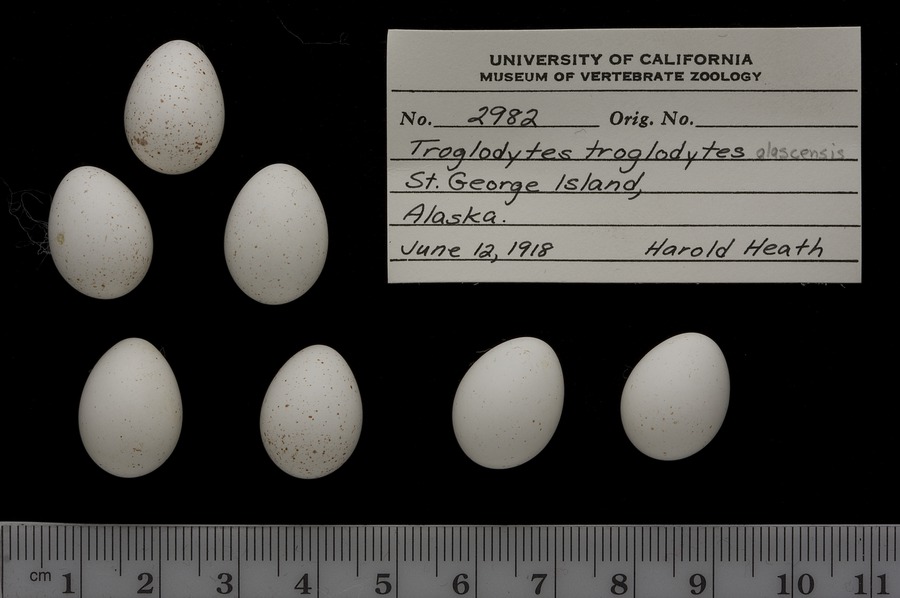 UNIVERSITY OF CALIFORNIA
MUSEUM OF VERTEBRATE ZOOLOGY
No. 2982 Orig. No.
Troglodytes troglodytes alascensis
St. George Island,
Alaska.
June 12, 1918 Harold Heath
cm 1 2 3 4 5 6 7 8 9 10 11